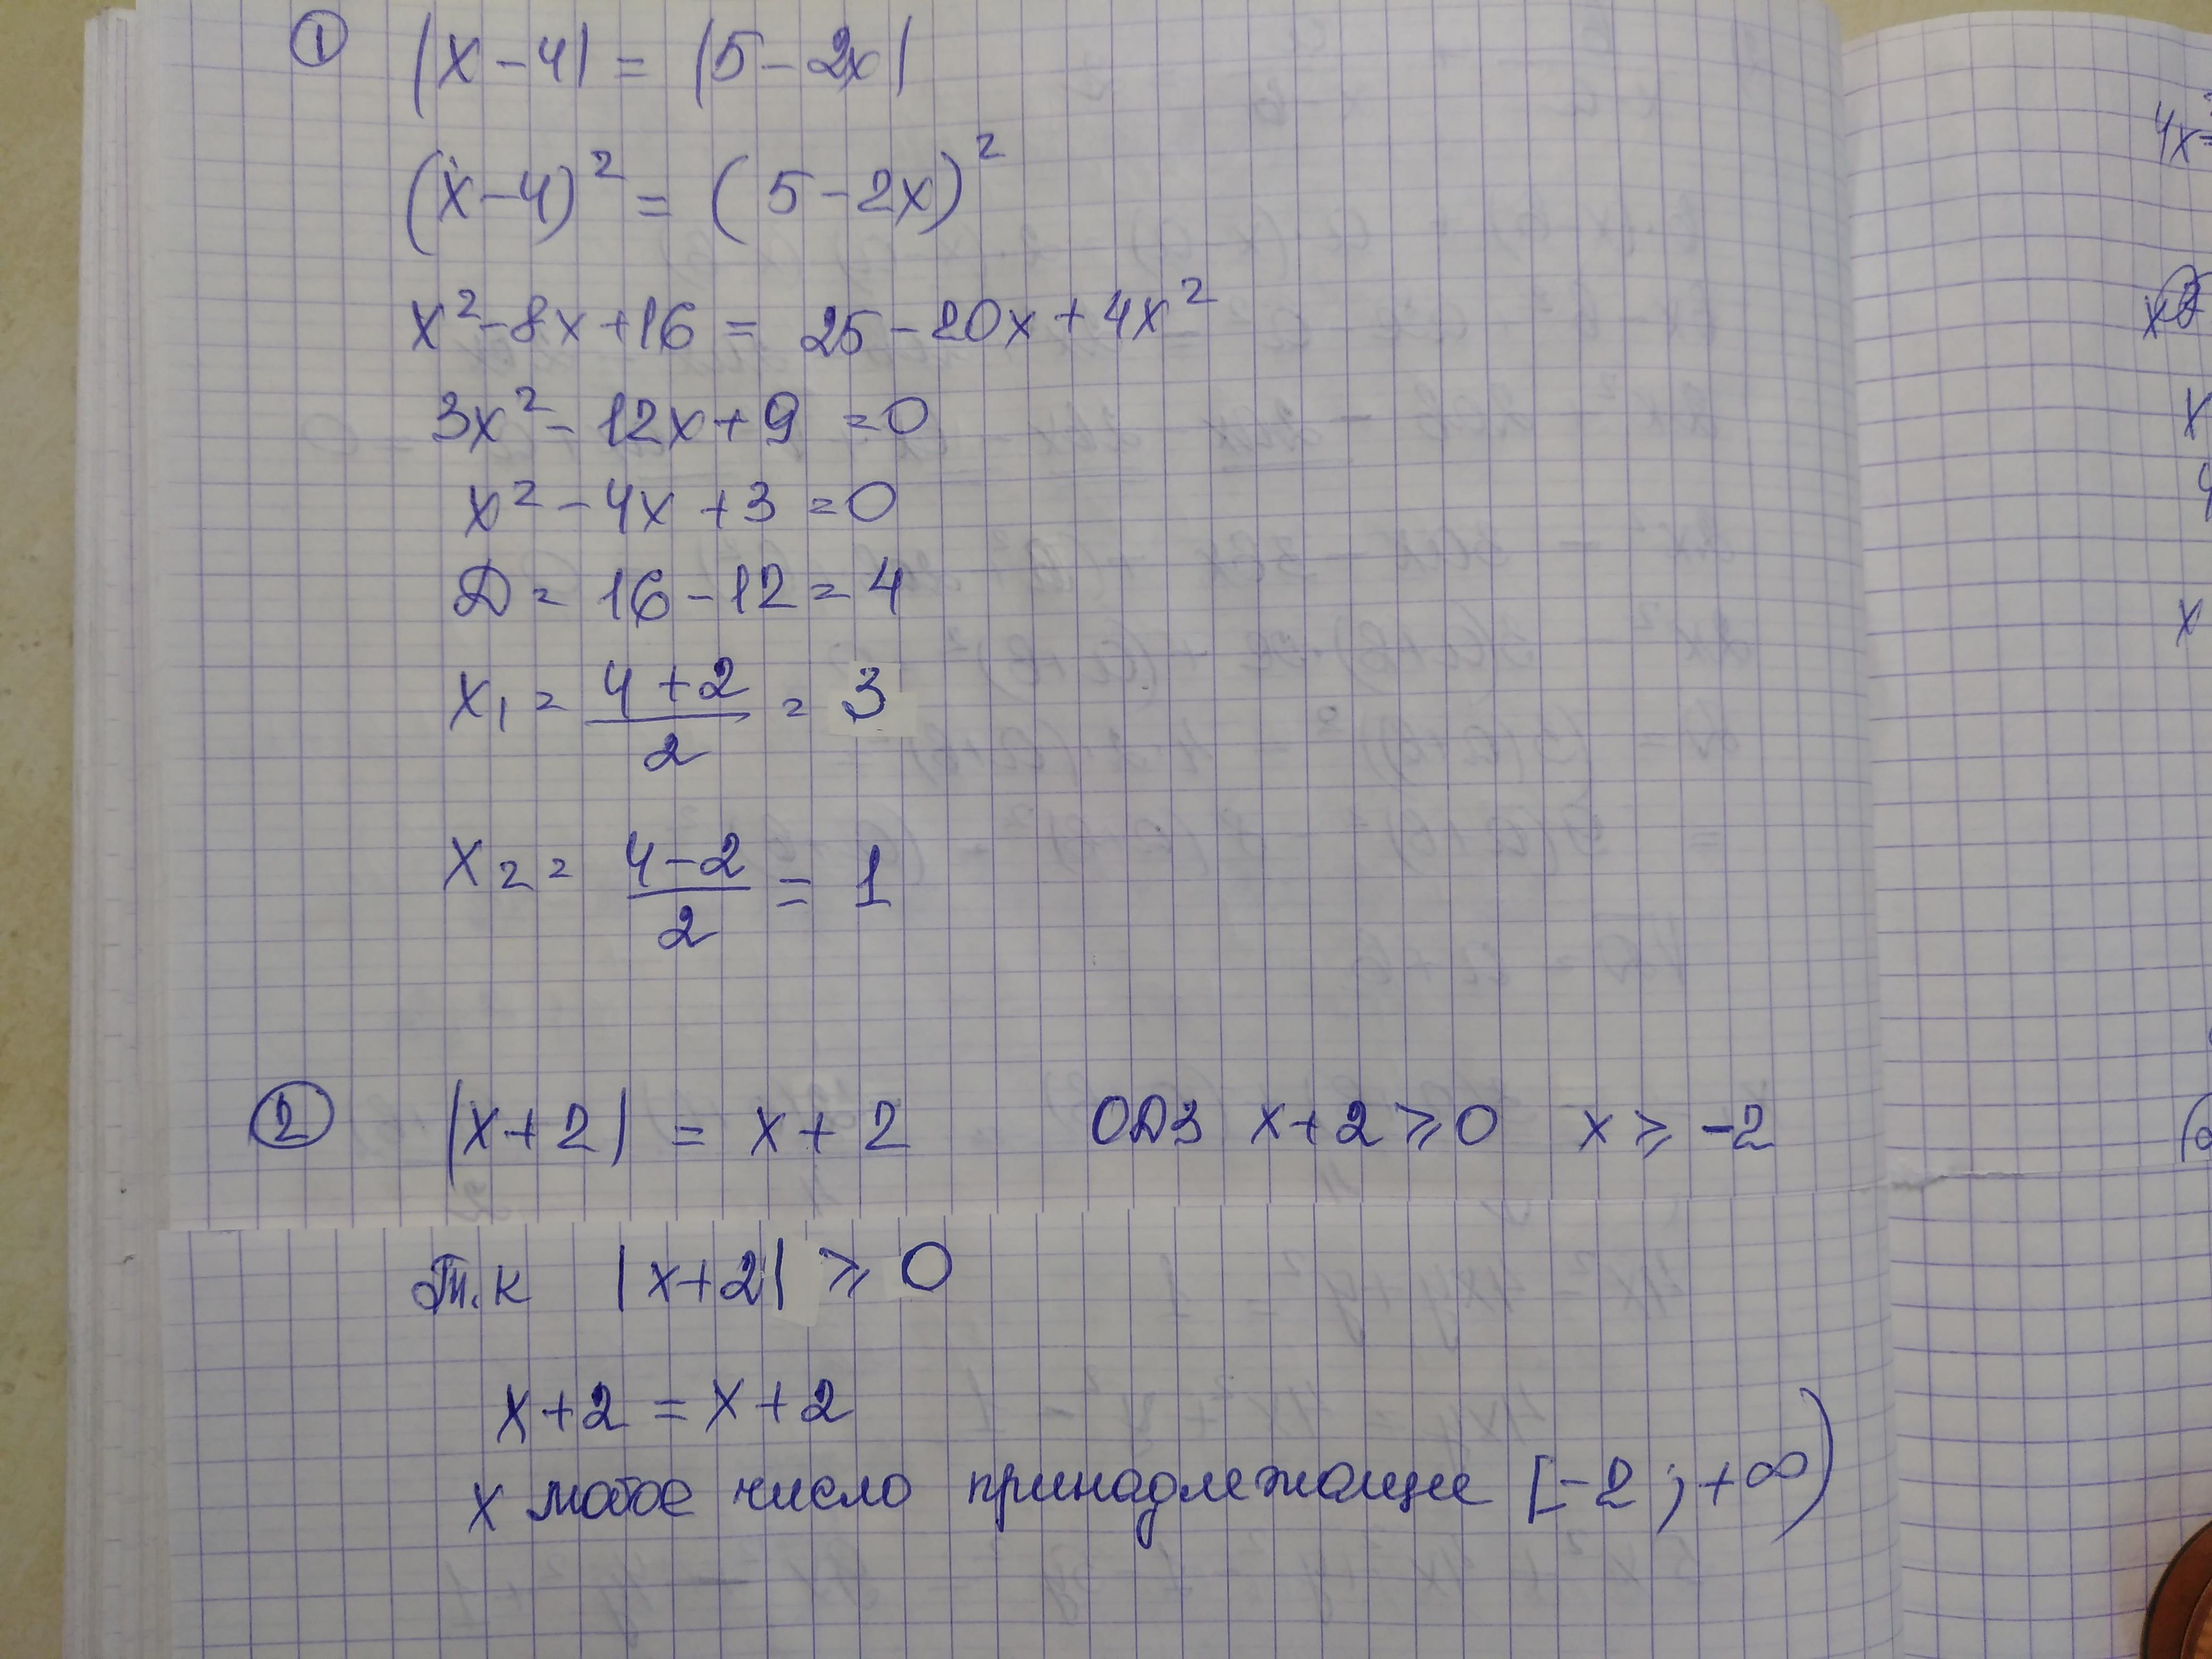 ① |x-4| = |5-2x|
(x-4)² = (5-2x)²
x²-8x+16 = 25-20x+4x²
3x²-12x+9 =0
x²-4x+3=0
D= 16-12=4
x₁ = (4+2)/2 = 3
x₂ = (4-2)/2 = 1
② |x+2| = x+2 ОДЗ x+2⩾0 x⩾-2
Т.к |x+2| ⩾ 0
x+2=x+2
x любое число принадлежащее [-2;+∞)